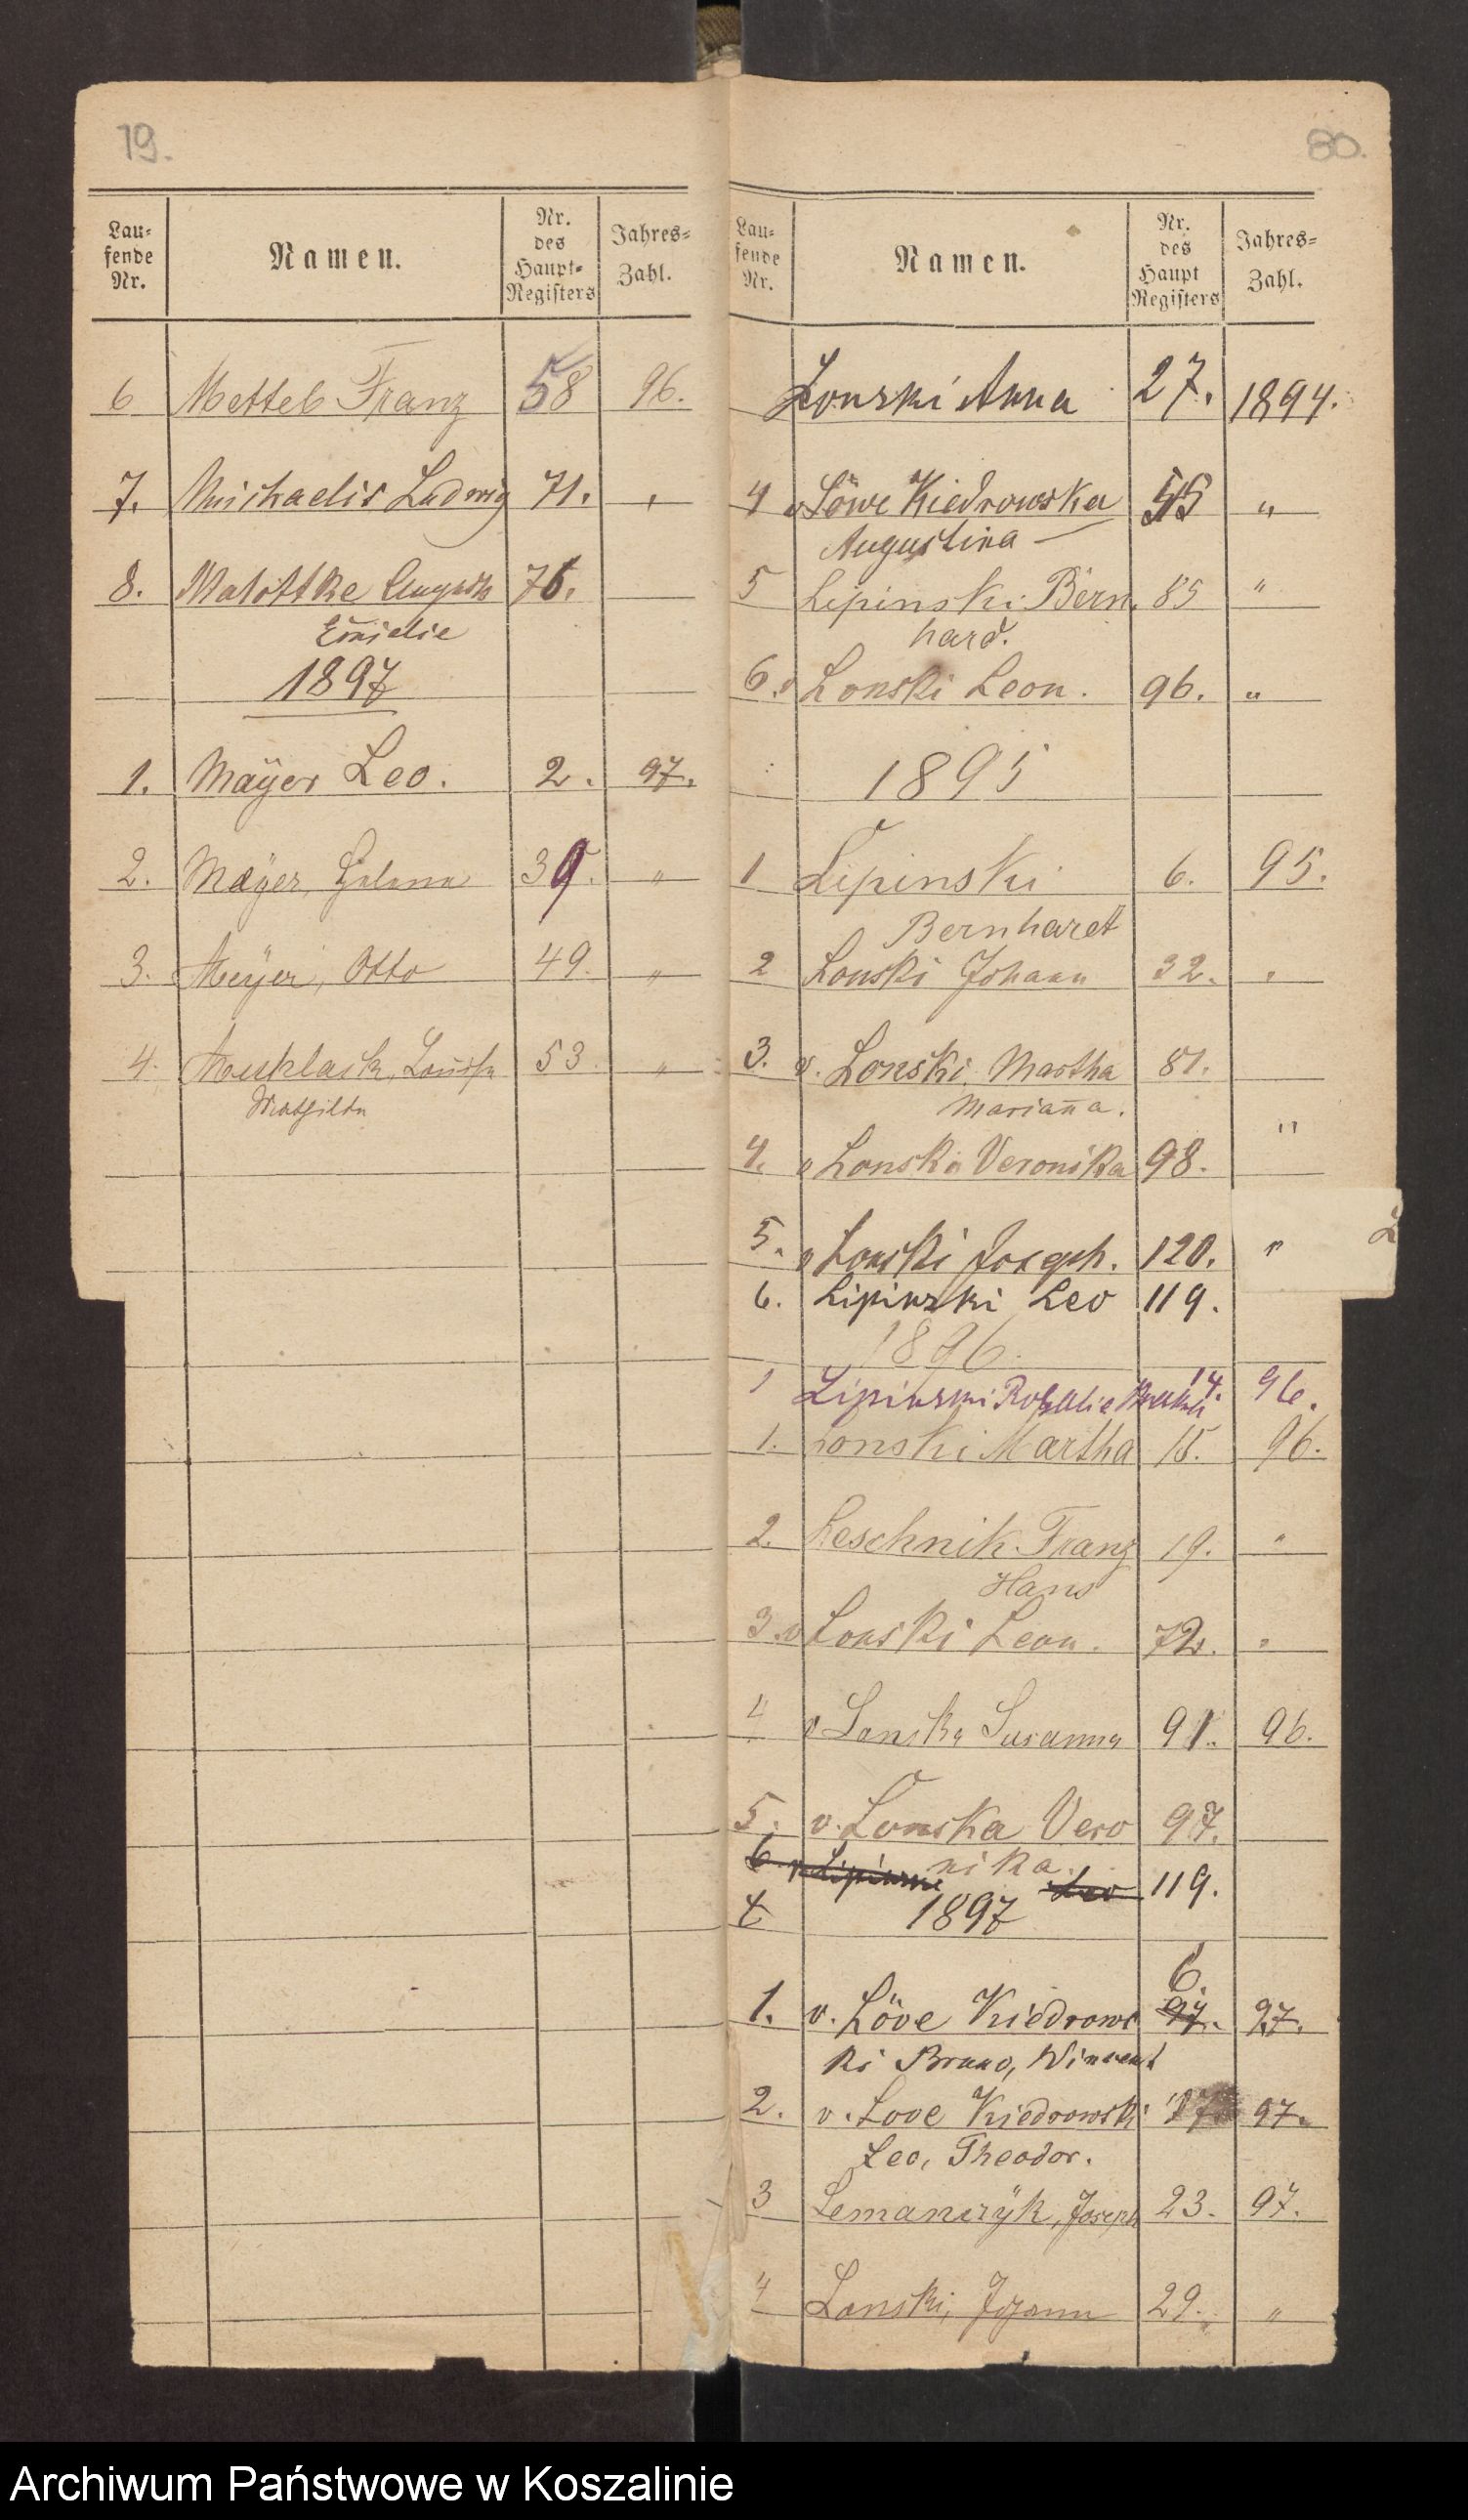 79.
Lau-
fende
Nr.
Namen.
Nr.
des
Haupt-
Registers
Jahres-
Zahl.
6 Mettel Franz 58 96.
7. Michaelis Ludwig 71. "
8. Malottke 76.
Emielie
1897
1. Mayer Leo. 2. 97.
2. Mayer, Helena 39. "
3. Meyer, Otto 49. "
4. Louisa 53. "
Mathilde
80.
Lau-
fende
Nr.
Namen.
Nr.
des
Haupt
Registers
Jahres-
Zahl.
Lonski Anna 27. 1894.
4 v Löwe Kiedrowska 55 "
Augustina —
5 Lipinski Bern. 85 "
hard.
6. v Lonski Leon. 96. "
1895
1 Lipinski 6. 95.
Bernhard
2 Lonski Johann 32. "
3. v. Lonski Martha 81.
Marianna. "
4. v Lonski Veronika 98.
5. v Lonski Joseph. 120. "
6. Lipinski Leo 119.
1896.
1 Lipinski Rosalie 14. 96.
1. Lonski Martha 15. 96.
2. Leschnik Franz 19. "
Hans
3. v Lonski Leon. 72. "
4 v Lonska Susanna 91. 96.
5. v. Lonska Vero 97.
nika.
6 v Lipinski Leo 119.
1897
6.
1. v. Löve Kiedrows 97. 97.
ki Bruno, Wincent
2. v. Love Kiedrowski 17 97.
Leo, Theodor.
3 Lemanczÿk, Joseph 23. 97.
4 Lonski, Johann 29. "
Archiwum Państwowe w Koszalinie